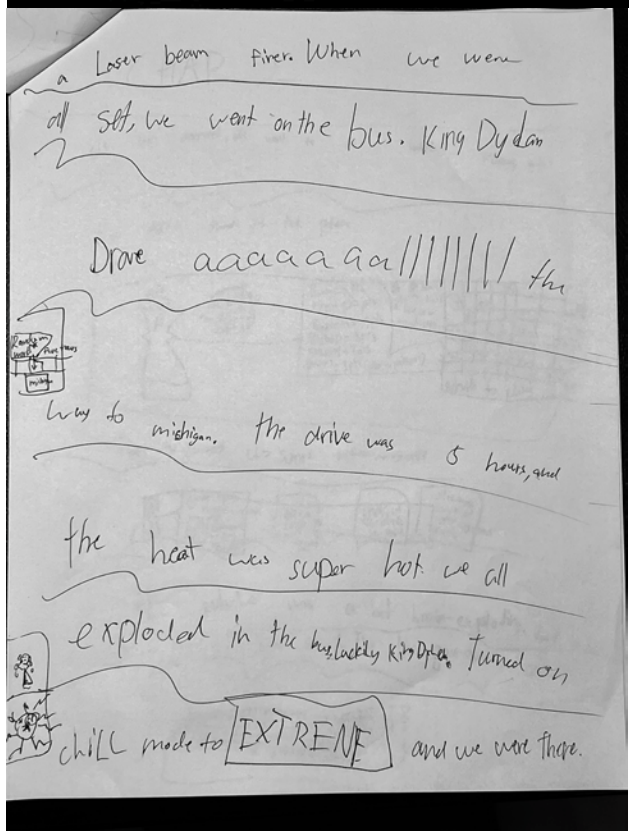 a Laser beam firer. When we were
all set, we went on the bus. King Dydan
Drove aaaaaaallllllll the
way to mishigan. the drive was 5 hours, and
the heat was super hot. we all
exploded in the bus, luckily King Dydan. Turned on
chiLL mode to EXTRENE and we were there.